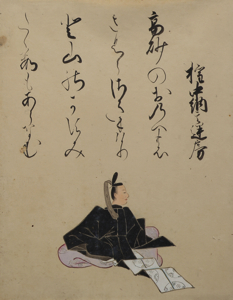 権中納言匡房
高砂のおのへの
さくらさきにけり
と山のかすみ
たゝすもあらなむ